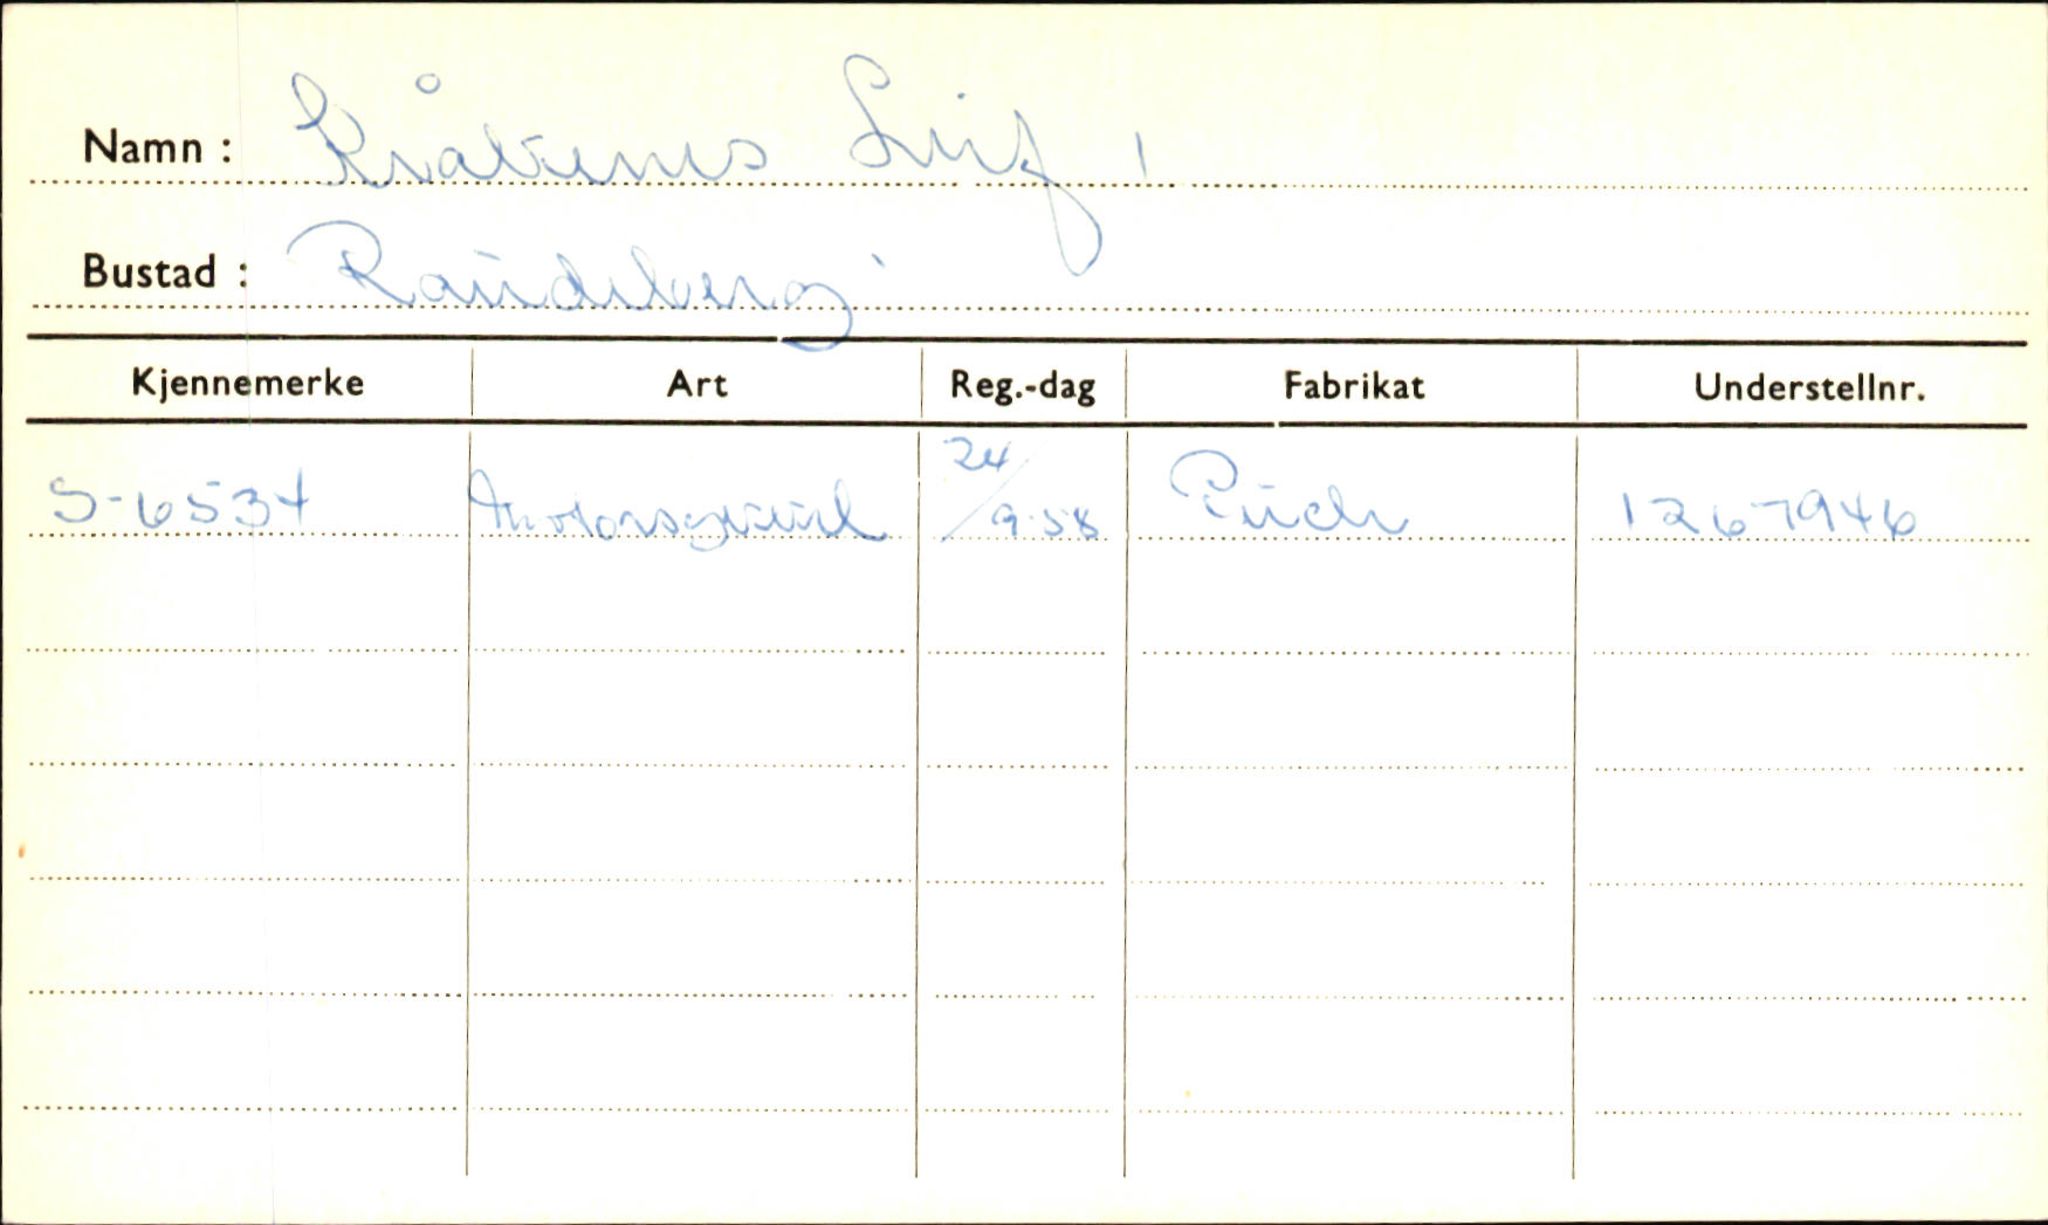 Namn : Kråkenes Leif,
Bustad : Raudeberg
Kjennemerke Art Reg.-dag Fabrikat Understellnr.
S-6534 Motorsykkel 24/9-58 Puch 1267946